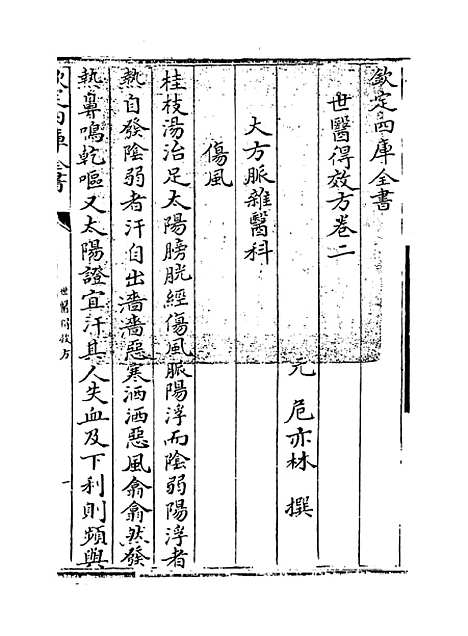 欽定四庫全書
世醫得效方卷二
元 危亦林 撰
大方脈雜醫科
傷風
桂枝湯治足太陽膀胱經傷風脈陽浮而陰弱陽浮者
熱自發陰弱者汗自出濇濇惡寒洒洒惡風翕翕然發
熱鼻鳴乾嘔又太陽證宜汗其人失血及下利則頻與
欽定四庫全書
世醫得效方
一